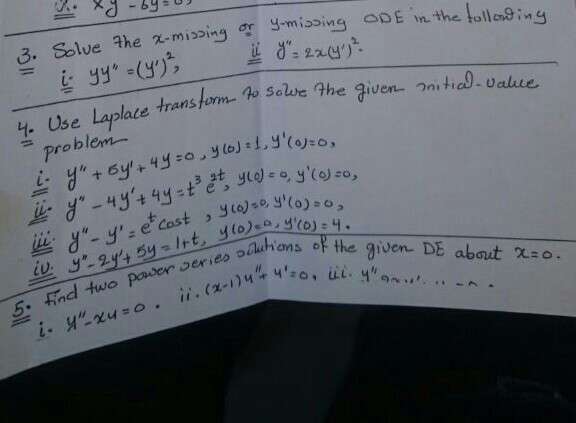 xy - 6y = 0,
3. Solve the x-missing or y-missing ODE in the following
i. yy" = (y')², ii y" = 2x(y')².
4. Use Laplace transform to solve the given initial-value
problem
i. y" + 5y' + 4y = 0, y(0) = 1, y'(0) = 0,
ii. y" - 4y' + 4y = t³ e²ᵗ, y(0) = 0, y'(0) = 0,
iii. y" - y' = eᵗ cost, y(0) = 0, y'(0) = 0,
iv. y" - 2y' + 5y = 1+t, y(0) = 0, y'(0) = 4.
5. Find two power series solutions of the given DE about x=0.
i. y" - xy = 0. ii. (x-1)y" + y' = 0. iii. y"